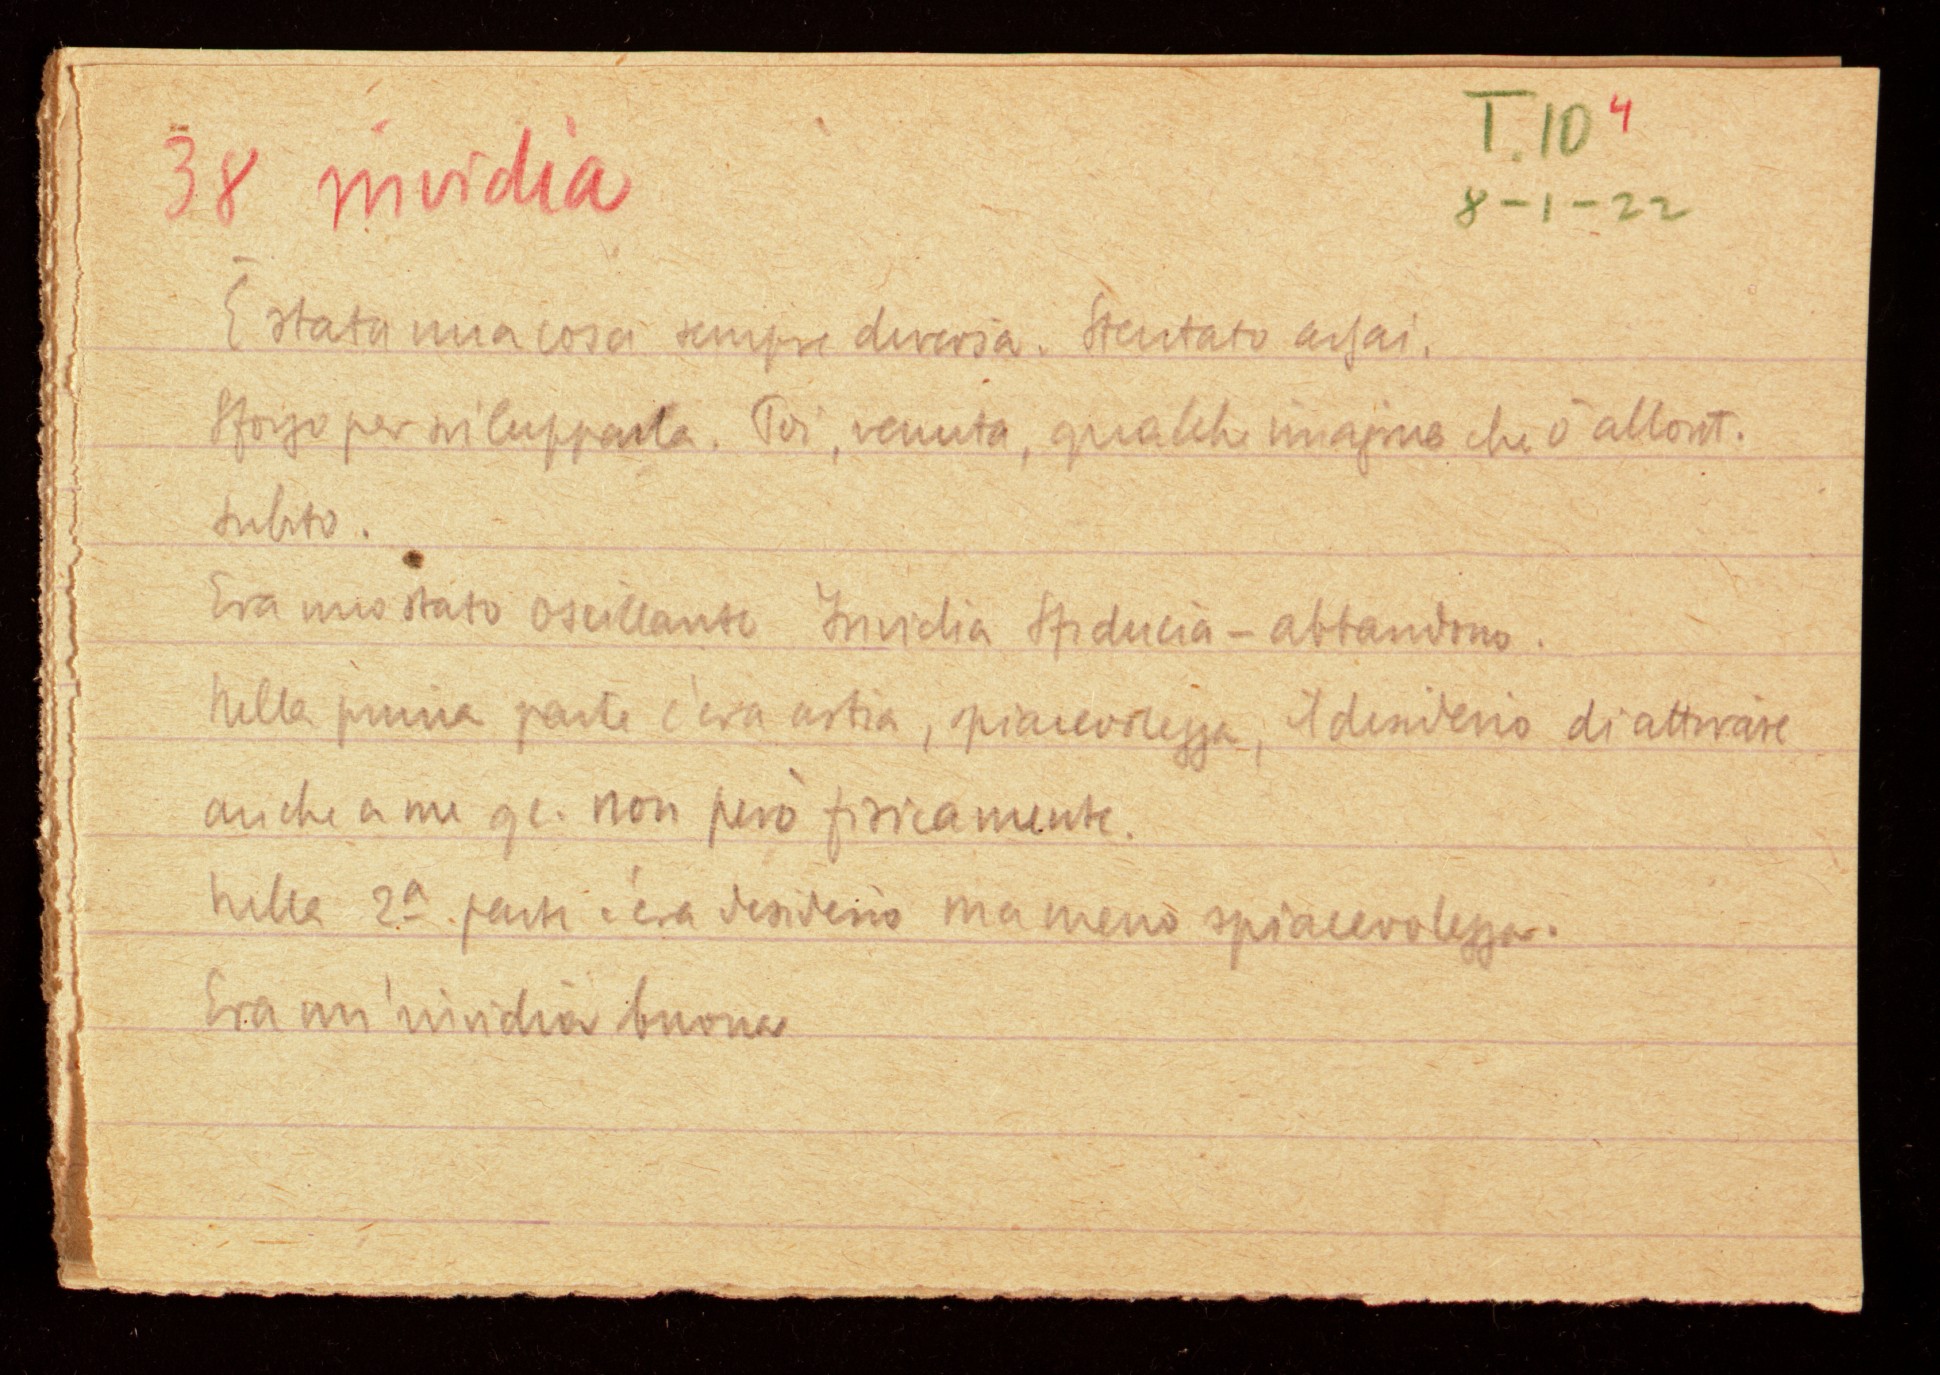 38 invidia
T. 10 4
8-1-22
È stata una cosa sempre diversa. Stentato assai.
Sforzo per svilupparla. Poi, venuta, qualche imagine che ò allont.
subito.
Era uno stato oscillante Invidia Sfiducia - abbandono.
Nella prima parte c'era astia, spiacevolezza, il desiderio di attivare
anche a me qc. non però fisicamente.
Nella 2ª parte c'era desiderio ma meno spiacevolezza.
Era un'invidia buona